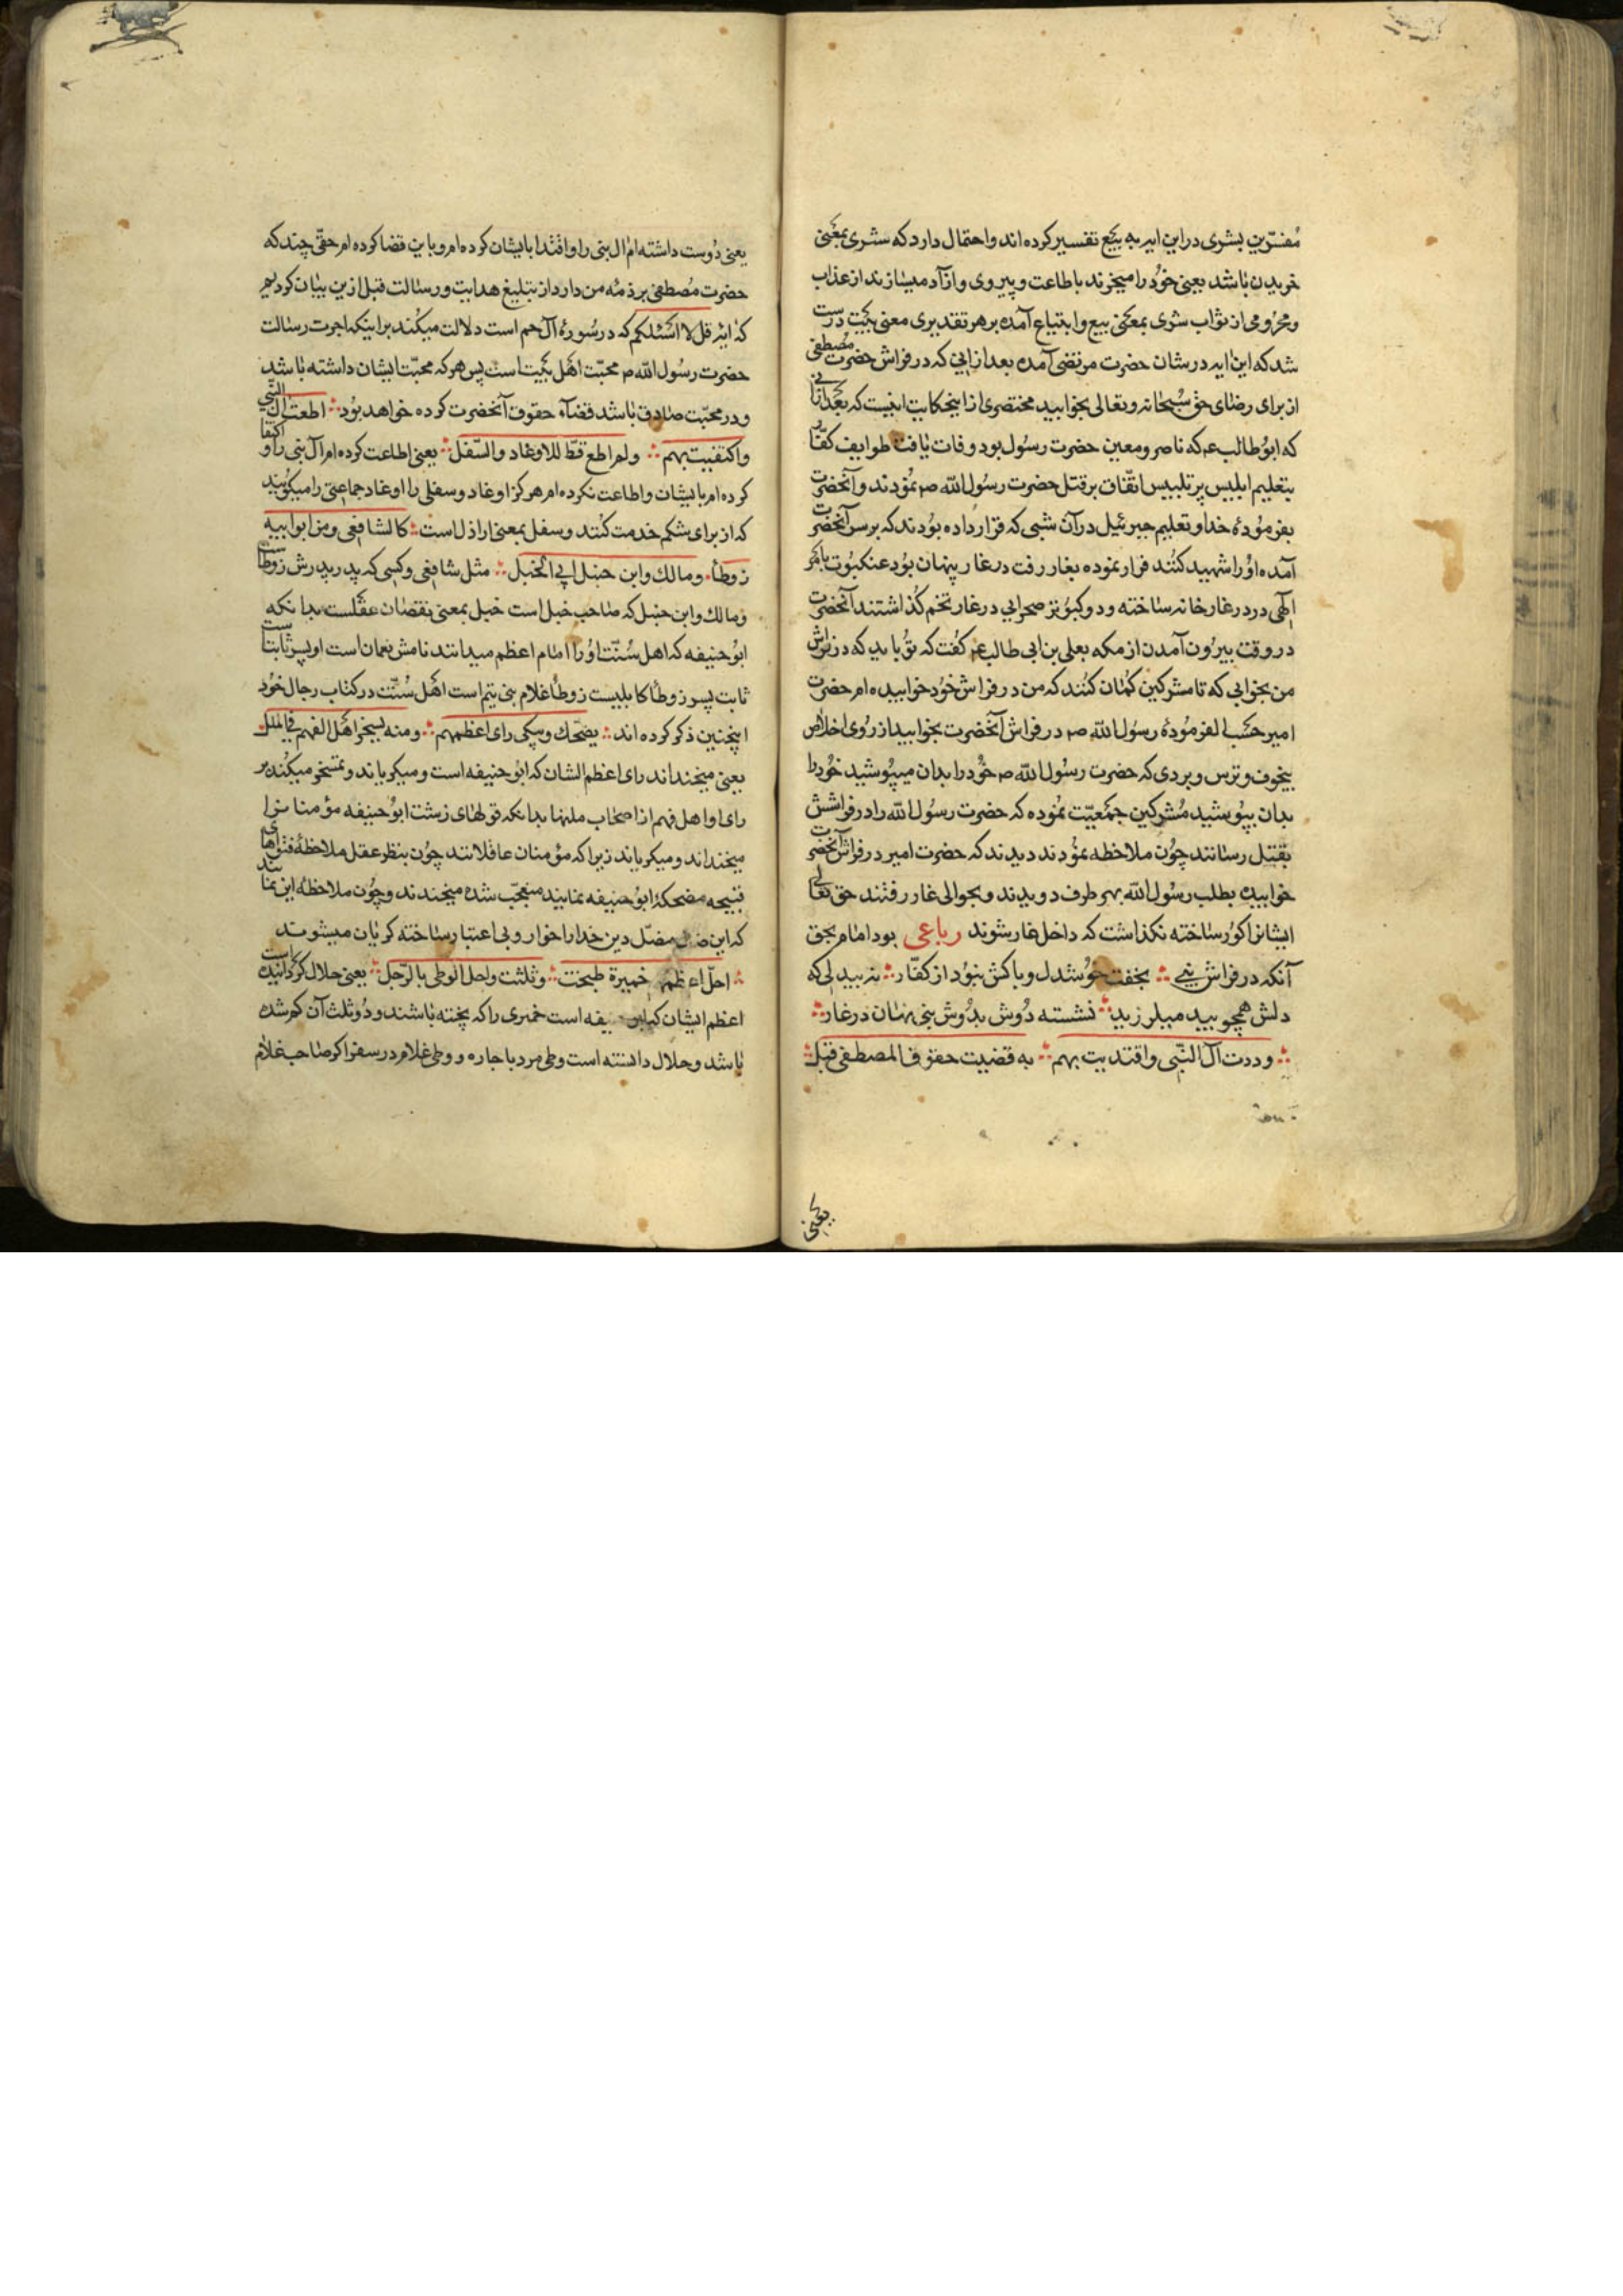 مفسّرین یشری در این ایه به بیع تفسیر کرده اند و احتمال دارد که یشری بمعنی
خریدن باشد یعنی خود را میخرند باطاعت و پیروی و ازاد میسازند از عذاب
و محرومی از ثواب شری بمعنی بیع و ابتیاع آمده بر هر تقدیری معنی بیت درست
شد که این ایه در شان حضرت مرتضی آمده بعد از انی که در فراش حضرت مصطفی
از برای رضای حق سبحانه و تعالی بخوابید مختصری از اینحکایت اینست که بعد از انی
که ابوطالب عم که ناصر و معین حضرت رسول بود وفات یافت طوایف کفار
بتعلیم ابلیس پر تلبیس اتّفاق بر قتل حضرت رسول اللّه صم نمودند و آنحضرت
بفرمودۀ خدا و تعلیم جبرئیل در آن شبی که قرار داده بودند که بر سر آنحضرت
آمده او را شهید کنند فرار نموده بغار رفت در غار پنهان بود عنکبوت بامر
الهی در در غار خانه ساخته و دو کبوتر صحرایی در غار تخم گذاشتند آنحضرت
در وقت بیرون آمدن از مکه بعلی بن ابی طالب عم گفت که تو باید که در فراش
من بخوابی که تا مشرکین گمان کنند که من در فراش خود خوابیده ام حضرت
امیر حسب الفرمودۀ رسول اللّه صم در فراش آنحضرت بخوابید از روی اخلاص
بیخوف و ترس و بردی که حضرت رسول اللّه صم خود را بدان میپوشید خود را
بدان بپوشید مشرکین جمعیّت نموده که حضرت رسول اللّه را در فراشش
بقتل رسانند چون ملاحظه نمودند دیدند که حضرت امیر در فراش آنحضرت
خوابیده بطلب رسول اللّه بهر طرف دویدند و بحوالی غار رفتند حق تعالی
ایشانرا کور ساخته نگذاشت که داخل غار شوند رباعی بود امام بحق
آنکه در فراش نبی بخفت خوشدل و باکش نبود از کفّار نه بیدلی که
دلش همچو بید میلرزید نشسته دوش بدوش نبی نهان در غار
وددت آل النّبی واقتدیت بهم به قضیت حقوق المصطفی قبلی
یعنی
یعنی دوست داشته ام ال نبی را و اقتدا بایشان کرده ام و باین قضا کرده ام حقّی چند که
حضرت مصطفی بر ذمّه من دارد از تبلیغ هدایت و رسالت قبل ازین بیان کردیم
که ایه قل لا اسئلکم که در سورۀ آل حم است دلالت میکند بر اینکه اجرت رسالت
حضرت رسول اللّه صم محبّت اهل بیت است پس هر که محبّت ایشان داشته باشد
و در محبّت صادق باشد قضاء حقوق آنحضرت کرده خواهد بود اطعت ال النّبی
واکتفیت بهم ولم اطع قطّ للاوغاد والسّفل یعنی اطاعت کرده ام آل نبی را و اکتفا
کرده ام بایشان و اطاعت نکرده ام هرگز اوغاد و سفلی را اوغاد جماعتی را میگویند
که از برای شکم خدمت کنند و سفل بمعنی اراذل است کالشافعی ومن ابوابیه
زوطا ومالك وابن حنبل ابی الخبل مثل شافعی و کسی که پدر پدرش زوطا ست
و مالك و ابن حنبل که صاحب خبل است خبل بمعنی نقصان عقلست بدانکه
ابو حنیفه که اهل سنّت او را امام اعظم میدانند نامش نعمان است او پسر ثابت است
ثابت پسر زوطا کابلیست زوطا غلام بنی تیم است اهل سنّت در کتاب رجال خود
اینچنین ذکر کرده اند یضحك ویبکی رای اعظمهم ومنه یسخر اهل الفهم فی الملل
یعنی میخنداند رای اعظم الشان که ابو حنیفه است و میگریاند و تمسخر میکنند بر
رای او اهل فهم از اصحاب ملتها بدانکه قولهای زشت ابو حنیفه مؤمنانرا
میخنداند و میگریاند زیرا که مؤمنان عاقلانند چون بنظر عقل ملاحظۀ فتواهای
قبیحه مضحکۀ ابو حنیفه نمایند متعجّب شده میخندند و چون ملاحظۀ این نمایند
که این مضلّ دین خدا را خوار و بی اعتبار ساخته گریان میشوند
احلّ اعظمهم خمیرة طبخت وثلثت واحل الوطی بالرّجل یعنی حلال گردانیده است
اعظم ایشان که ابو حنیفه است خمری را که پخته باشند و دو ثلث آن کم شده
باشد و حلال دانسته است وطی مرد باجاره و وطی غلام در سفر اگر صاحب غلام